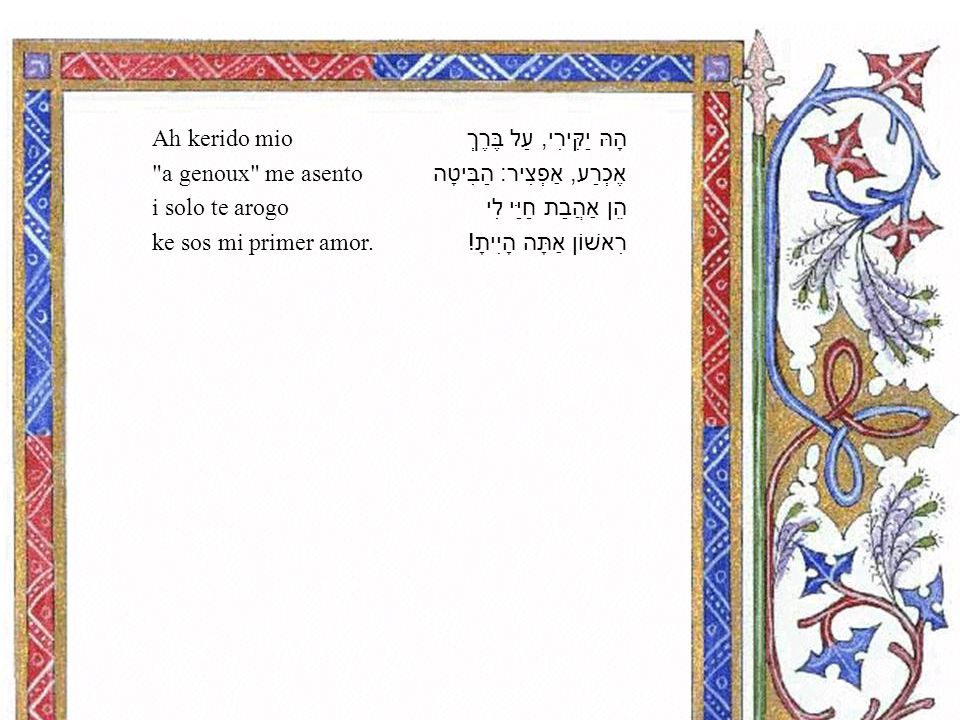 Ah kerido mio
"a genoux" me asento
i solo te arogo
ke sos mi primer amor.
הָהּ יַקִּירִי, עַל בֶּרֶךְ
אֶכְרַע, אַפְצִיר: הַבִּיטָה
הֵן אַהֲבַת חַיַּי לִי
רִאשׁוֹן אַתָּה הָיִיתָ!